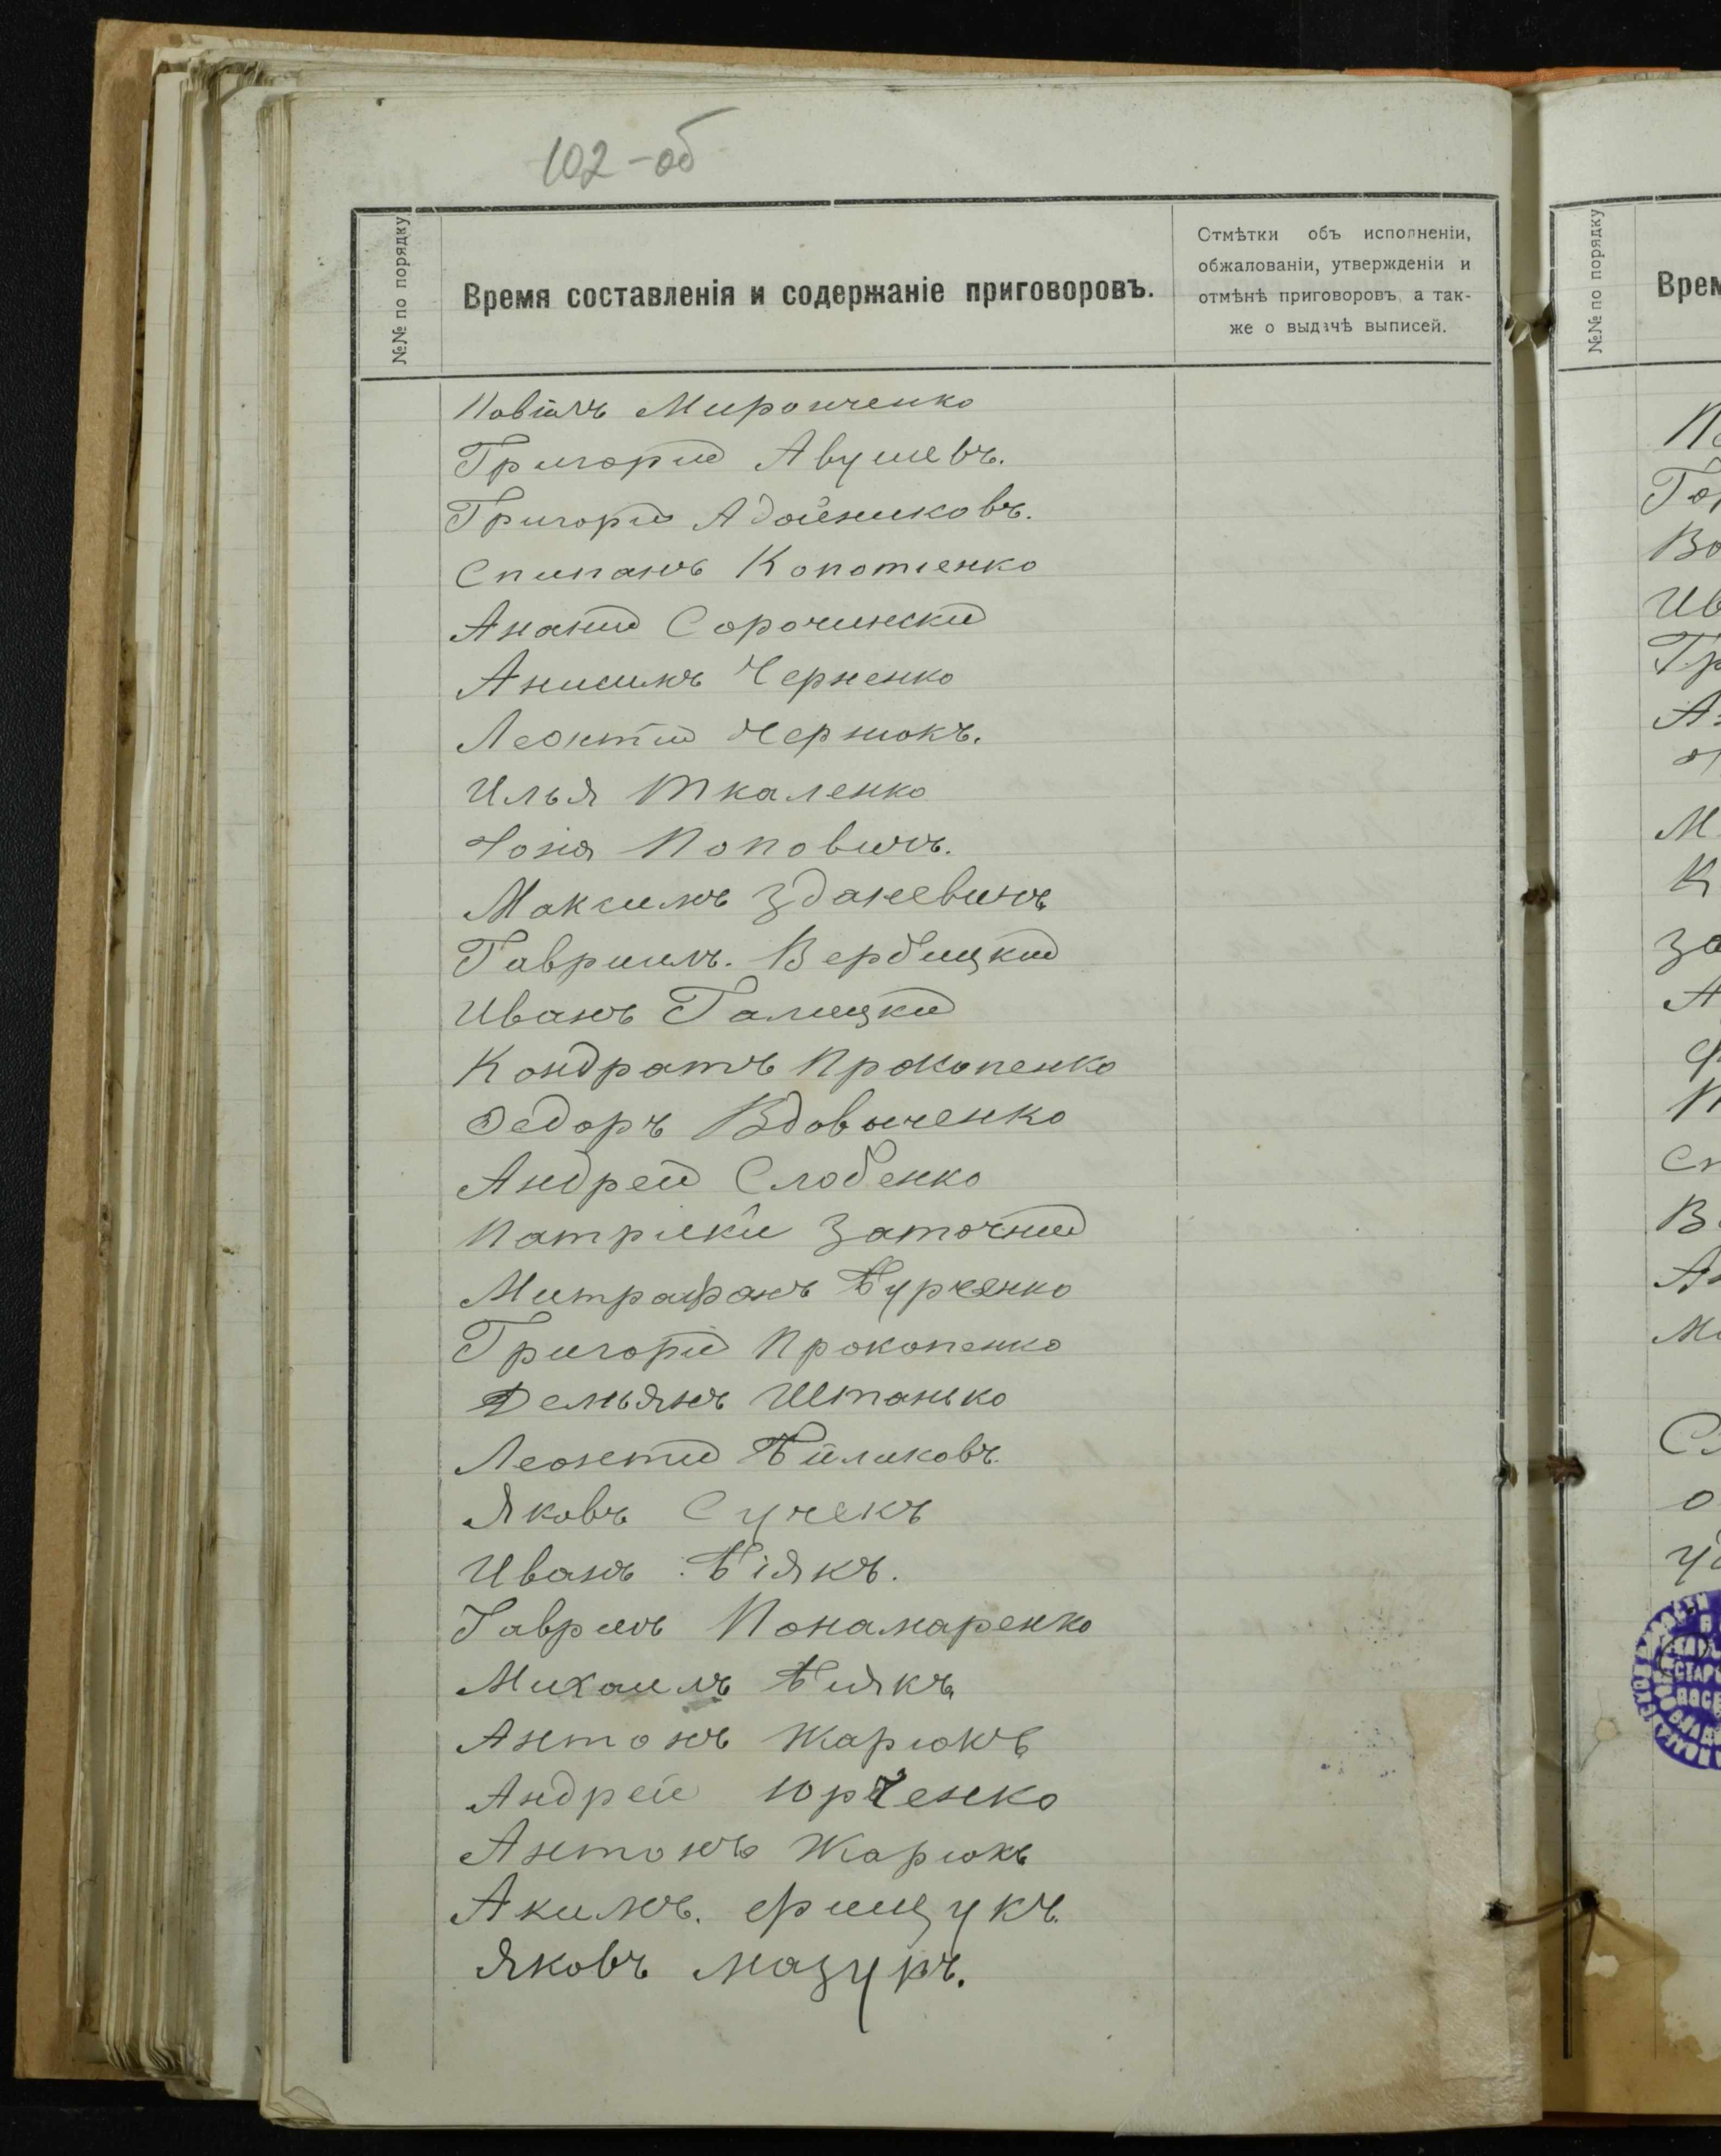 102-об
№№ по порядку
Время составленія и содержаніе приговоровъ.
Отмѣтки объ исполненіи,
обжалованіи, утвержденіи и
отмѣнѣ приговоровъ, а так-
же о выдачѣ выписей.
Мироиченко
Григорий Авушевъ.
Григорий
Степанъ Копотіенко
Ананий Сорочинский
Анисимъ Черненко
Леонтий Чернюкъ.
Илья Ткаленко
Іона Поповичъ.
Максимъ Зданевичъ
Гавриилъ. Вербицкий
Иванъ Галицкий
Кондратъ Прокопенко
Федоръ Вдовиченко
Андрей Слобенко
Патрикій Заточний
Митрафанъ Бурченко
Григорий Прокопенко
Демьянъ Штанько
Леонтий Биликовъ.
Яковъ Сучекъ
Иванъ Біякъ.
Гаврилъ Понамаренко
Михаилъ Биякъ
Антонъ Жарюкъ
Андрей Юрченко
Антонъ Жарюкъ
Акимъ. Фищукъ.
Яковъ Мазуръ.
№№ по порядку